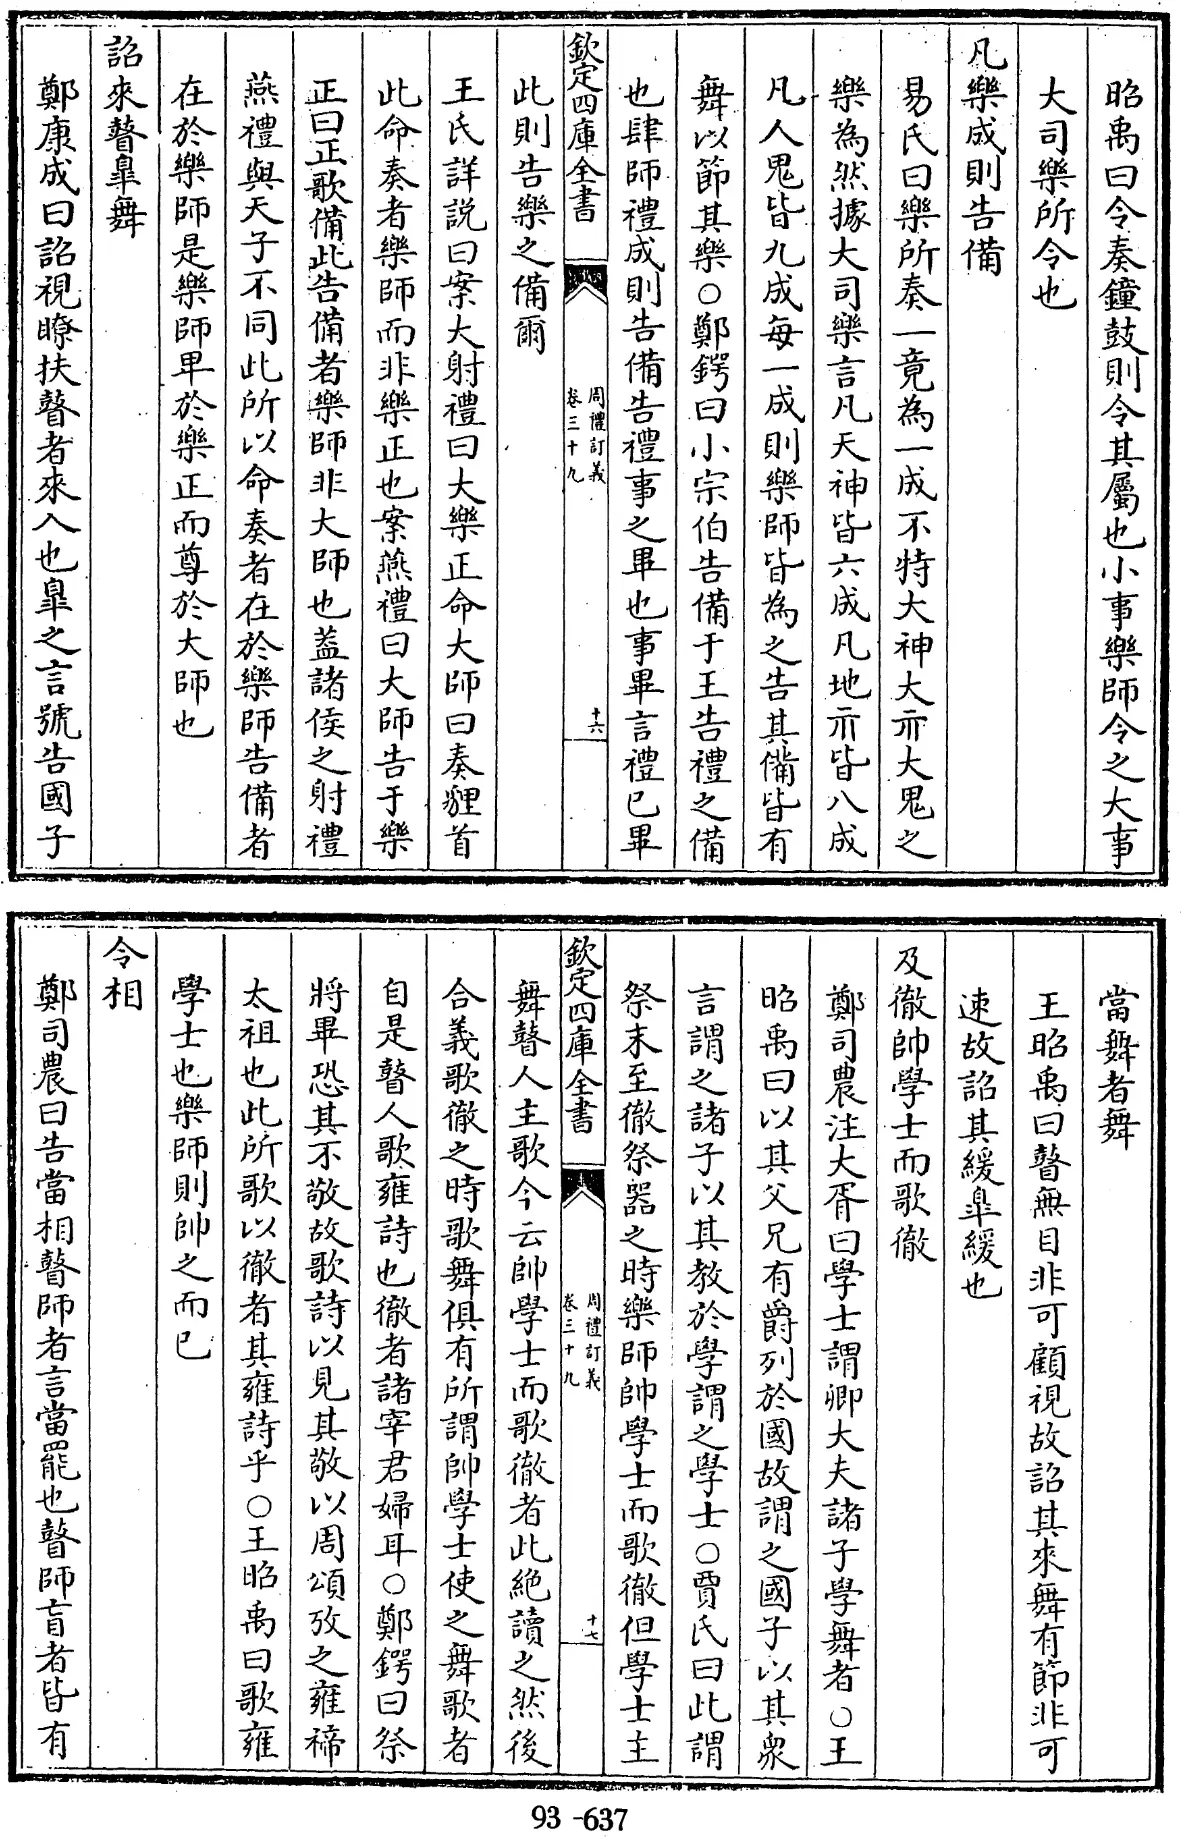 昭禹曰令奏鐘鼓則令其屬也小事樂師令之大事
大司樂所令也
凡樂成則告備
易氏曰樂所奏一竟為一成不特大神大示大鬼之
樂為然據大司樂言凡天神皆六成凡地示皆八成
凡人鬼皆九成每一成則樂師皆為之告其備皆有
舞以節其樂○鄭鍔曰小宗伯告備于王告禮之備
也肆師禮成則告備告禮事之畢也事畢言禮已畢
欽定四庫全書
周禮訂義
卷三十九
十六
此則告樂之備爾
王氏詳説曰案大射禮曰大樂正命大師曰奏貍首
此命奏者樂師而非樂正也案燕禮曰大師告于樂
正曰正歌備此告備者樂師非大師也葢諸侯之射禮
燕禮與天子不同此所以命奏者在於樂師告備者
在於樂師是樂師卑於樂正而尊於大師也
詔來瞽臯舞
鄭康成曰詔視瞭扶瞽者來入也臯之言號告國子
當舞者舞
王昭禹曰瞽無目非可顧視故詔其來舞有節非可
速故詔其緩臯緩也
及徹帥學士而歌徹
鄭司農注大胥曰學士謂卿大夫諸子學舞者○王
昭禹曰以其父兄有爵列於國故謂之國子以其衆
言謂之諸子以其教於學謂之學士○賈氏曰此謂
祭末至徹祭器之時樂師帥學士而歌徹但學士主
欽定四庫全書
周禮訂義
卷三十九
十七
舞瞽人主歌今云帥學士而歌徹者此絶讀之然後
合義歌徹之時歌舞俱有所謂帥學士使之舞歌者
自是瞽人歌雍詩也徹者諸宰君婦耳○鄭鍔曰祭
將畢恐其不敬故歌詩以見其敬以周頌攷之雍禘
太祖也此所歌以徹者其雍詩乎○王昭禹曰歌雍
學士也樂師則帥之而已
令相
鄭司農曰告當相瞽師者言當罷也瞽師盲者皆有
93-637